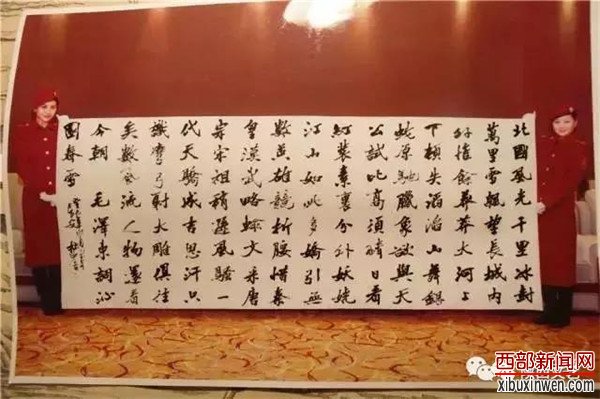 北國風光千里冰封
萬里雪飄望長城內
外惟餘莽莽大河上
下頓失滔滔山舞銀
蛇原馳臘象欲與天
公試比高須晴日看
紅裝素裹分外妖嬈
江山如此多嬌引無
數英雄競折腰惜秦
皇漢武略輸文采唐
宗宋祖稍遜風騷一
代天驕成吉思汗只
識彎弓射大雕俱往
矣數風流人物還看
今朝 毛澤東詞沁
園春雪
西部新闻网
xibuxinwen.com